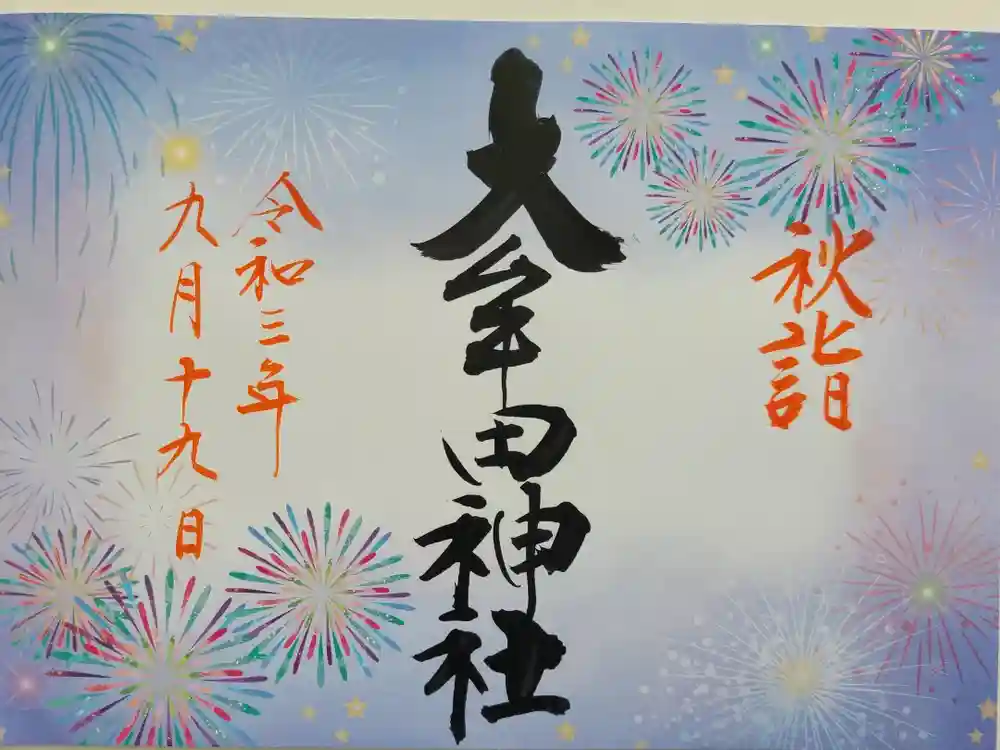 秋詣
大牟田神社
令和三年
九月十九日